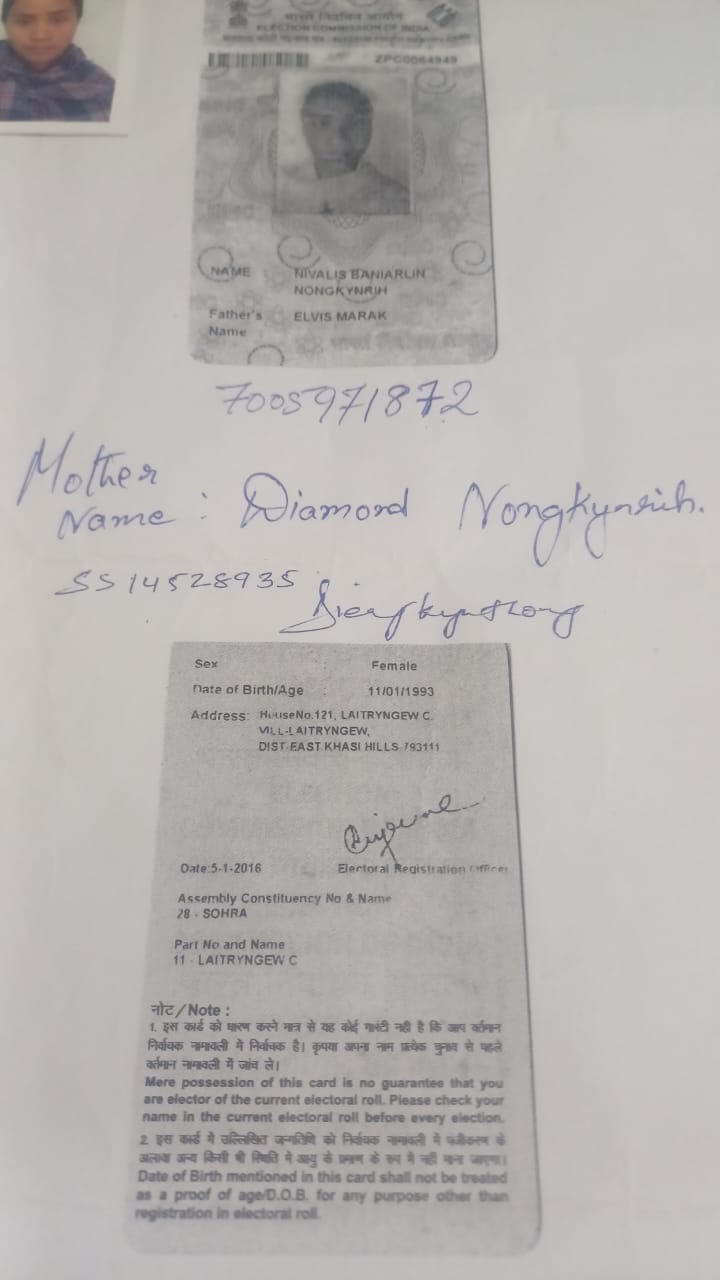 भारत निर्वाचन आयोग
ELECTION COMMISSION OF INDIA
ZPC0064949
NAME NIVALIS BANIARLIN
NONGKYNRIH
Father's ELVIS MARAK
Name
7005971872
Mother
Name : Diamond Nongkynrih.
SS14528935
Sex Female
Date of Birth/Age : 11/01/1993
Address: HouseNo.121, LAITRYNGEW C.
VILL-LAITRYNGEW,
DIST-EAST KHASI HILLS-793111
Date:5-1-2016 Electoral Registration Officer
Assembly Constituency No & Name
28 - SOHRA
Part No and Name
11 - LAITRYNGEW C
नोट/Note :
1. इस कार्ड को धारण करने मात्र से यह कोई गारंटी नही है कि आप वर्तमान
निर्वाचक नामावली में निर्वाचक है। कृपया अपना नाम प्रत्येक चुनाव से पहले
वर्तमान नामावली में जांच ले।
Mere possession of this card is no guarantee that you
are elector of the current electoral roll. Please check your
name in the current electoral roll before every election.
2. इस कार्ड में उल्लिखित जन्मतिथि को निर्वाचक नामावली में पंजीकरण के
अलावा अन्य किसी भी स्थिति में आयु के प्रमाण के रूप में नहीं माना जाएगा।
Date of Birth mentioned in this card shall not be treated
as a proof of age/D.O.B. for any purpose other than
registration in electoral roll.